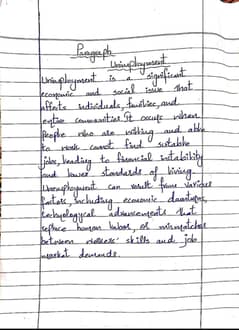 Paragraph
Unemployment
Unemployment is a significant
economic and social issue that
affects individuals, families, and
entire communities. It occurs when
People who are willing and able
to work cannot find suitable
jobs, leading to financial instability
and lower standards of living.
Unemployment can result from various
factors, including economic downturns,
technologycal advancements that
replace human labor, or mismatches
between workers' skills and job
market demands.